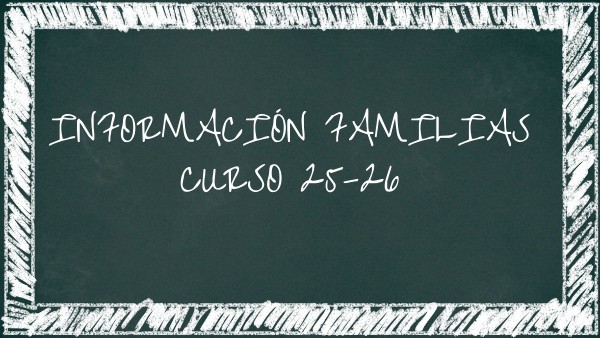 INFORMACIÓN FAMILIAS
CURSO 25-26